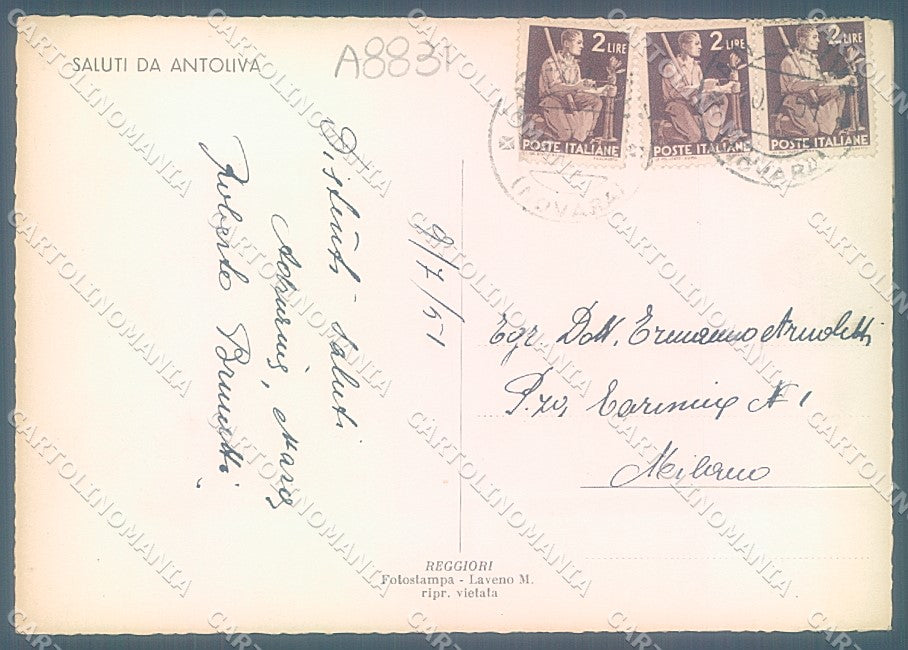 SALUTI DA ANTOLIVA
A8831
2 LIRE
POSTE ITALIANE
2 LIRE
POSTE ITALIANE
2 LIRE
POSTE ITALIANE
(NOVARA)
(NOVARA)
9/7/51
Distinti saluti
Roberto Brunetti
Egr. Dott. Ermanno Arnoletti
P.za N 1
Milano
REGGIORI
Fotostampa - Laveno M.
ripr. vietata
CARTOLINOMANIA